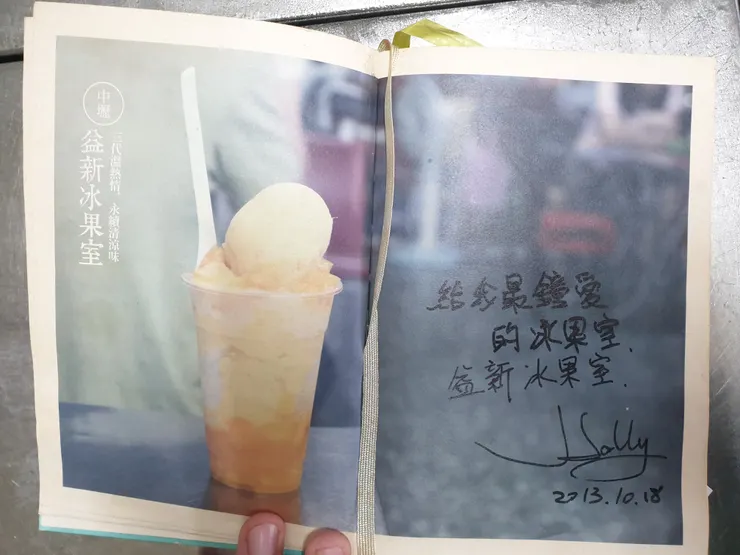 中壢
益新冰果室
三代濃熱情，永續清涼味
給我最鍾愛
的冰果室.
益新冰果室.
Sally
2013.10.18